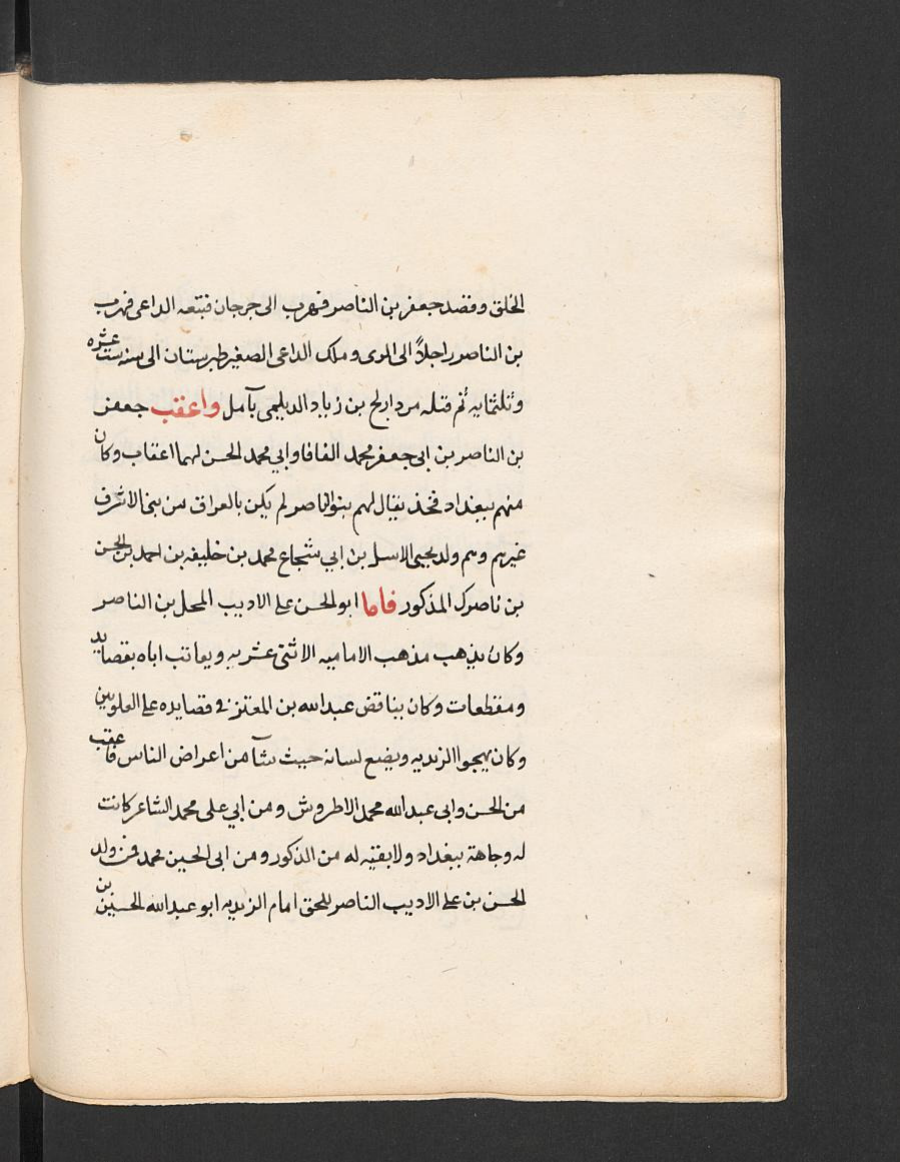 الخلق وقصد جعفر بن الناصر فهرب الى جرجان فتبعه الداعى فهرب
بن الناصر راجلاً الى الرى وملك الداعى الصغير طبرستان الى سنه ست عشره
وثلثمايه ثم قتله مرداويح بن زياد الديلمى بآمل واعقب جعفر
بن الناصر بن ابى جعفر محمد الفافا وابي محمد الحسن لهما اعقاب وكان
منهم ببغداد فخذ يقال لهم بنو الناصر لم يكن بالعراق من بنى الاشرف
غيرهم وهم ولد يحيى الاسل بن ابي شجاع محمد بن خليفه بن احمد بن الحسن
بن ناصرك المذكور فاما ابو الحسن على الاديب المحل بن الناصر
وكان يذهب مذهب الاماميه الاثنى عشريه ويعاتب اباه بقصايد
ومقطعات وكان يناقض عبد الله بن المعتز فى قصايده على العلويين
وكان يهجوا الزيديه ويضع لسانه حيث شآ من اعراض الناس فاعقب
من الحسن وابى عبد الله محمد الاطروش ومن ابي على محمد الشاعر كانت
له وجاهة ببغداد ولا بقيه له من الذكور ومن ابى الحسين محمد فمن ولد
الحسن بن على الاديب الناصر للحق امام الزيديه ابو عبد الله الحسين بن